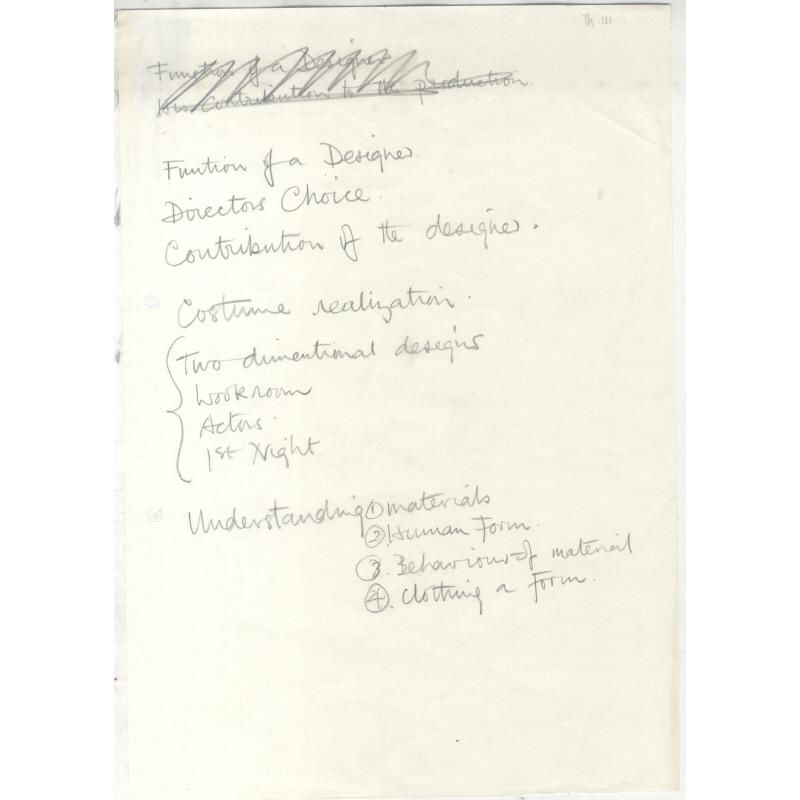 Th. III
Function of a Designer
His Contribution to the production.
Funtion of a Designer.
Directors Choice.
Contribution of the designer.
Costume realization.
Two dimentional designs
Workroom
Actors.
1st Night
Understanding ① materials
② Human Form.
③. Behaviour of material
④. Clothing a Form.